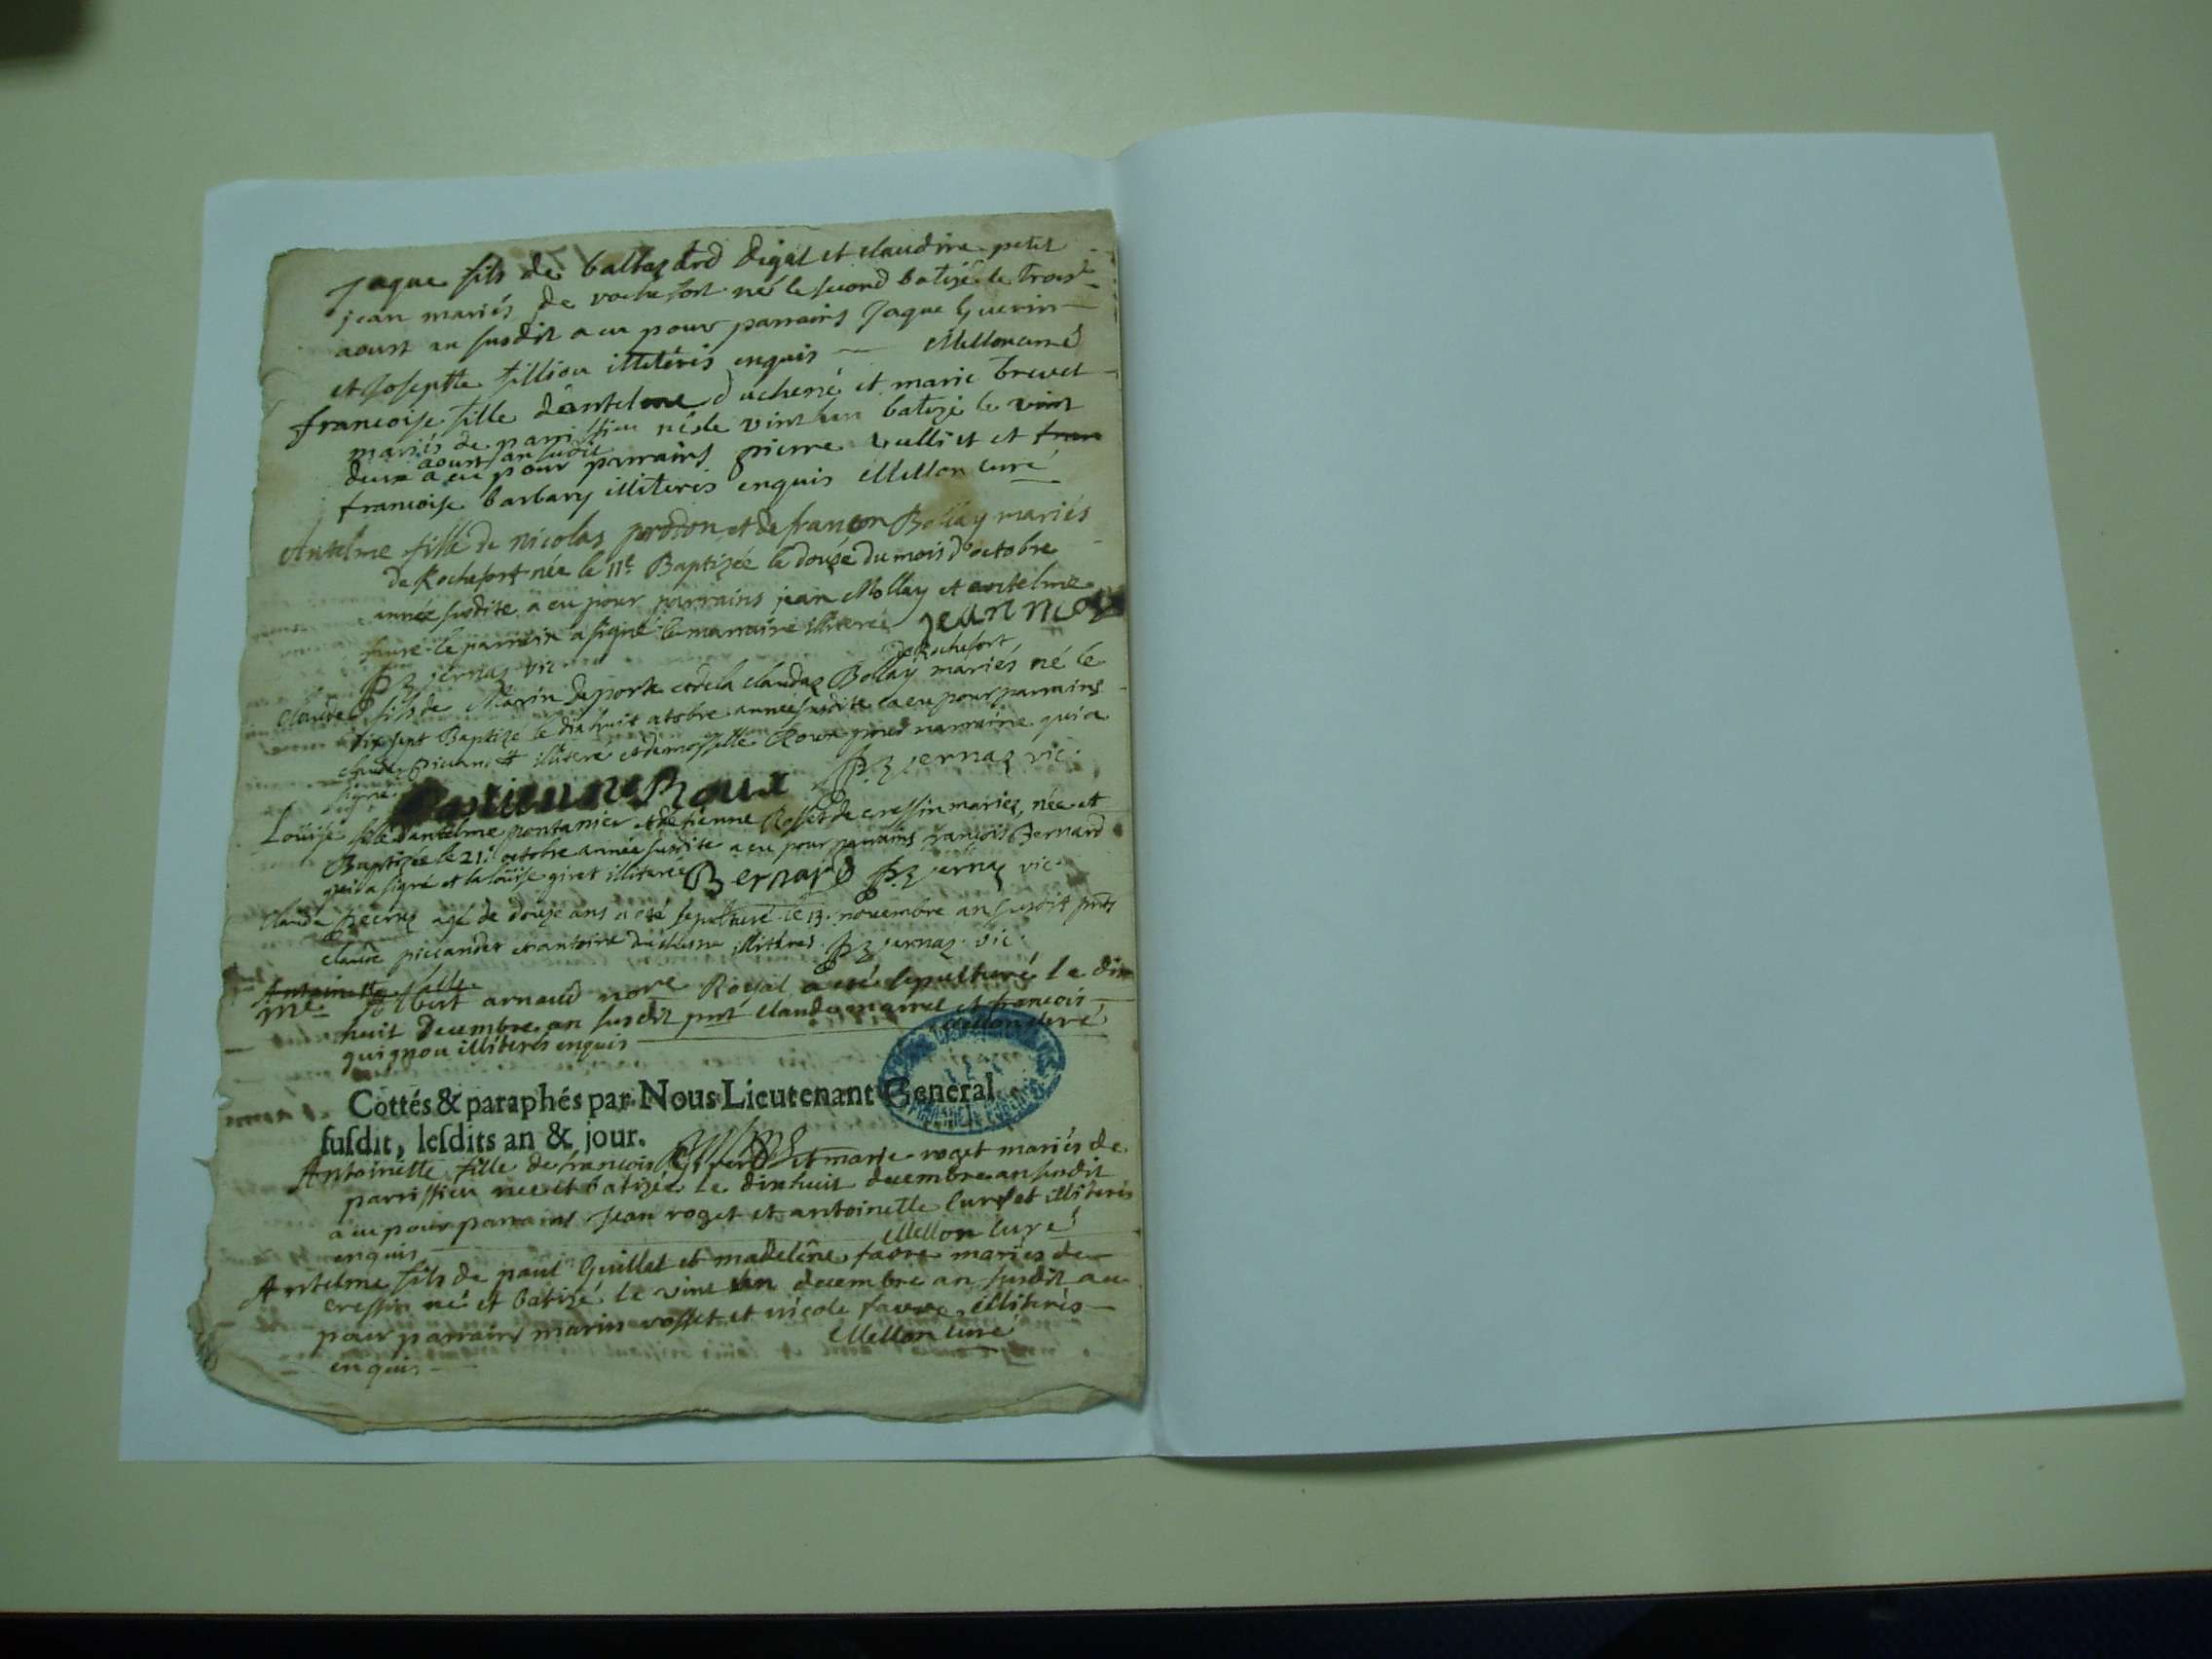 Jaque fils de baltazard digat et claudine petit
jean mariés de rochefort né le second batizé le trois
aoust an susdit a eu pour parrains Jaque Guerin
et Josephte fillion illiterés enquis Mellon curé
francoise fille dantelme duchene et marie brevet
mariés de parrissieu née le vint un batizé le vint
aoust an susdit
deux a eu pour parrains pierre Gulliet et fran
francoise barbary illiterés enquis Mellon curé
Antelme fille de nicolas prodon et de francon Bollay mariés
de Rochefort née le 11e Baptizée le douze du mois d'octobre
année susdite a eu pour parrains jean Mollay et antelme
favre le parrain a signé la marraine illiterée jean
vic
de Rochefort
Claude fils de Marin deporte et de la claudaz Bollay mariés né le
dix sept Baptize le dix huit octobre année susdite a eu pour parrains
claude illiteré et demoiselle Roux marraine qui a
signé Roux vernaz vic.
Louise fille d'antelme pontanier et d'etienne Rosset de cressin mariez, née et
Baptizée le 21e octobre année susdite a eu pour parrains françois Bernard
qui a signé et la louise giret illiterée Bernard vernaz vic.
Claude agé de douze ans a esté sepulturé le 13. novembre an susdit pnts
claude piccandet et antoine duchesne illiterés vernaz vic.
Antoinette fille
me Albert arnaud nore Royal a eté sepulturé le dix
huit decembre an susdit pnt claude marrel et francois
quignon illiterés enquis Mellon curé
Cottés & paraphés par Nous Lieutenant General
susdit, lesdits an & jour.
Antoinette fille de francois et marie roget mariés de
parrissieu nee et batizée le dixhuit decembre an susdit
a eu pour parrains Jean roget et antoinette illiterés
enquis Mellon curé
Antelme fils de paul Guillet et madelene favre mariés de
cressin né et batizé le vint un decembre an susdit a eu
pour parrains marin rosset et nicole favre illiterés
enquis Mellon curé